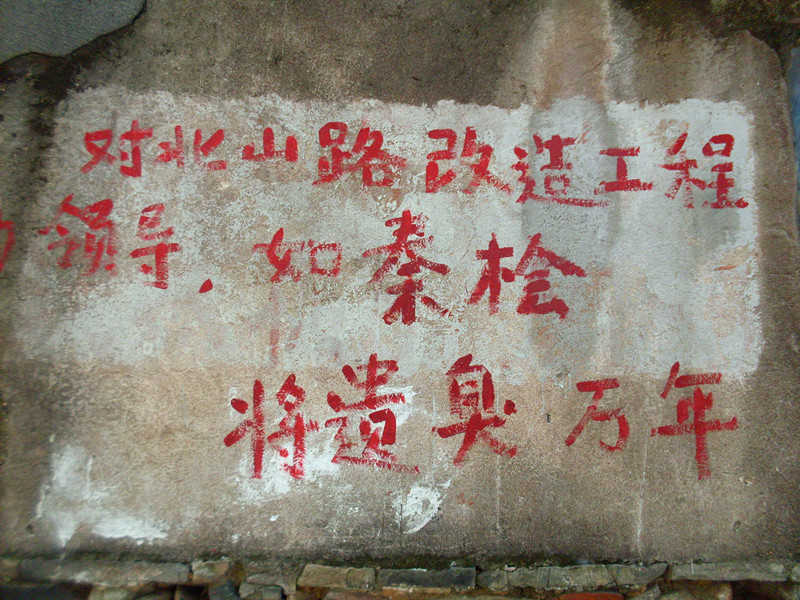 对北山路改造工程
的领导，如秦桧
将遗臭万年